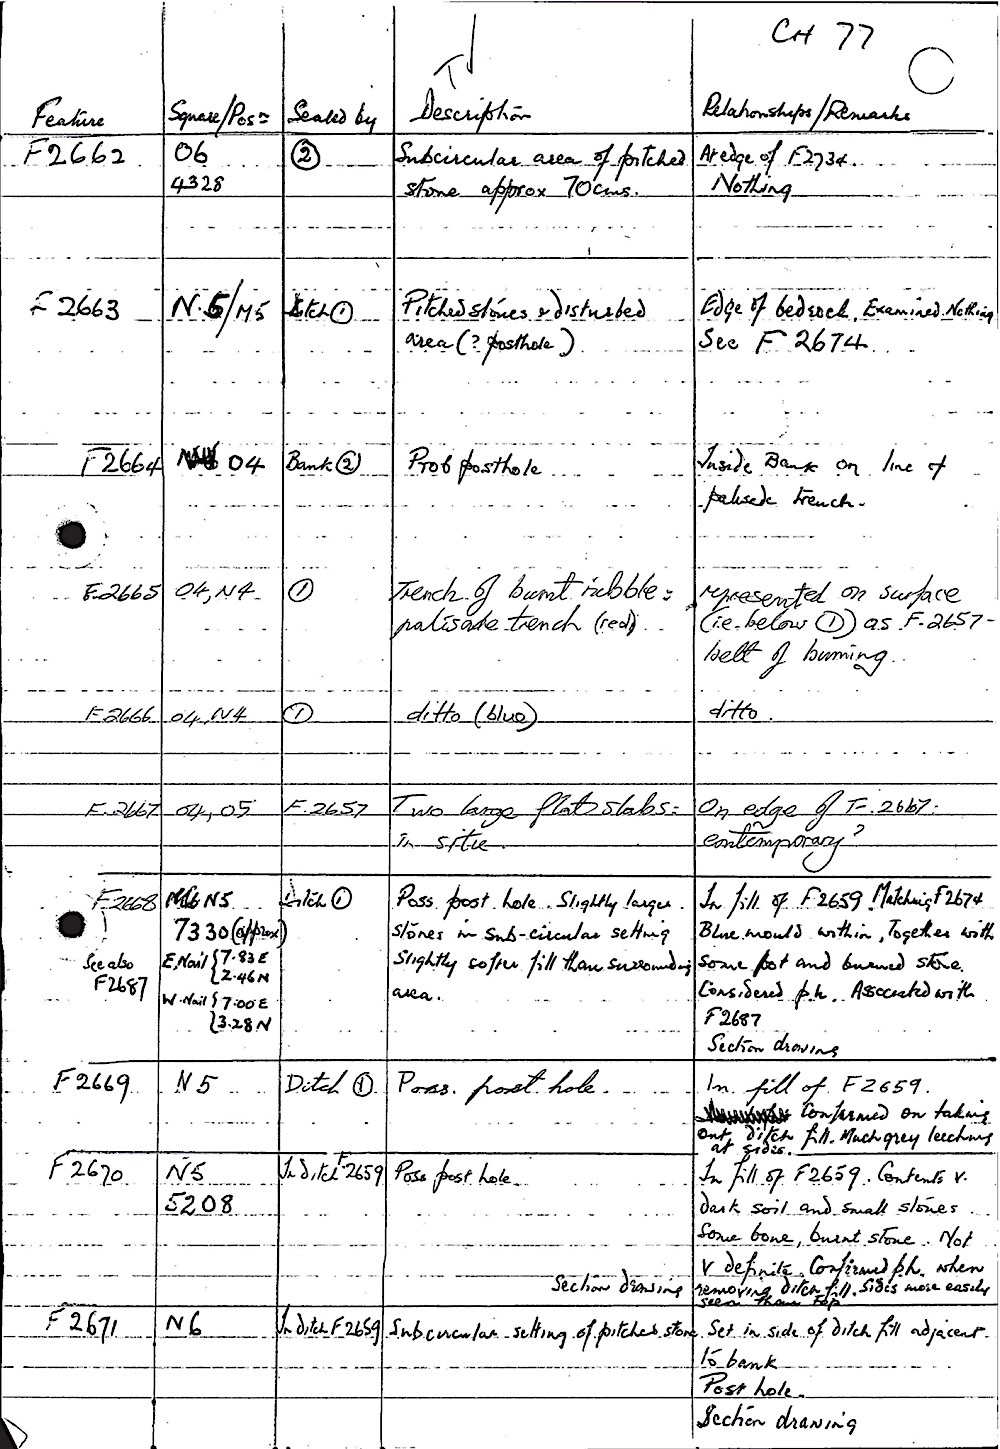 CH 77
Feature Square/Pos= Sealed by Description Relationships/Remarks
F2662 06 ② Subcircular area of pitched At edge of F2734.
4328 stone approx 70cms. Nothing
F2663 N.5/M5 Ditch ① Pitched stones & disturbed Edge of bedrock. Examined. Nothing
area (? posthole) See F 2674
F2664 04 Bank ② Prob posthole Inside Bank on line of
palisade trench.
F.2665 04, N4 ① Trench of burnt rubble = represented on surface
palisade trench (red) (ie. below ①) as F.2657 -
belt of burning.
F.2666 04, N4 ① ditto (blue) ditto.
F.2667 04, 05 F.2657 Two large flat slabs = On edge of F.2667.
in situ. contemporary?
F2668 N5 Ditch ① Poss. post hole. Slightly larger In fill of F2659. Matching F2674
7330 (approx) stones in sub-circular setting Blue mould within, Together with
See also E. Nail {7.83 E Slightly softer fill than surrounding some pot and burned stone.
F2687 {2.46 N area. Considered p.h. Associated with
W. Nail {7.00 E F2687
{3.28 N Section drawing
F2669 N5 Ditch ① Poss. post hole. In fill of F2659.
Confirmed on taking
out ditch fill. Much grey leeching
at sides.
F2670 N5 In ditch F2659 Poss post hole. In fill of F2659. Contents v.
5208 dark soil and small stones.
Some bone, burnt stone. Not
v definite. Confirmed p.h. when
Section drawing removing ditch fill. Sides more easily
seen than top
F2671 N6 In ditch F2659 Subcircular setting of pitched stone Set in side of ditch fill adjacent
to bank
Post hole.
Section drawing